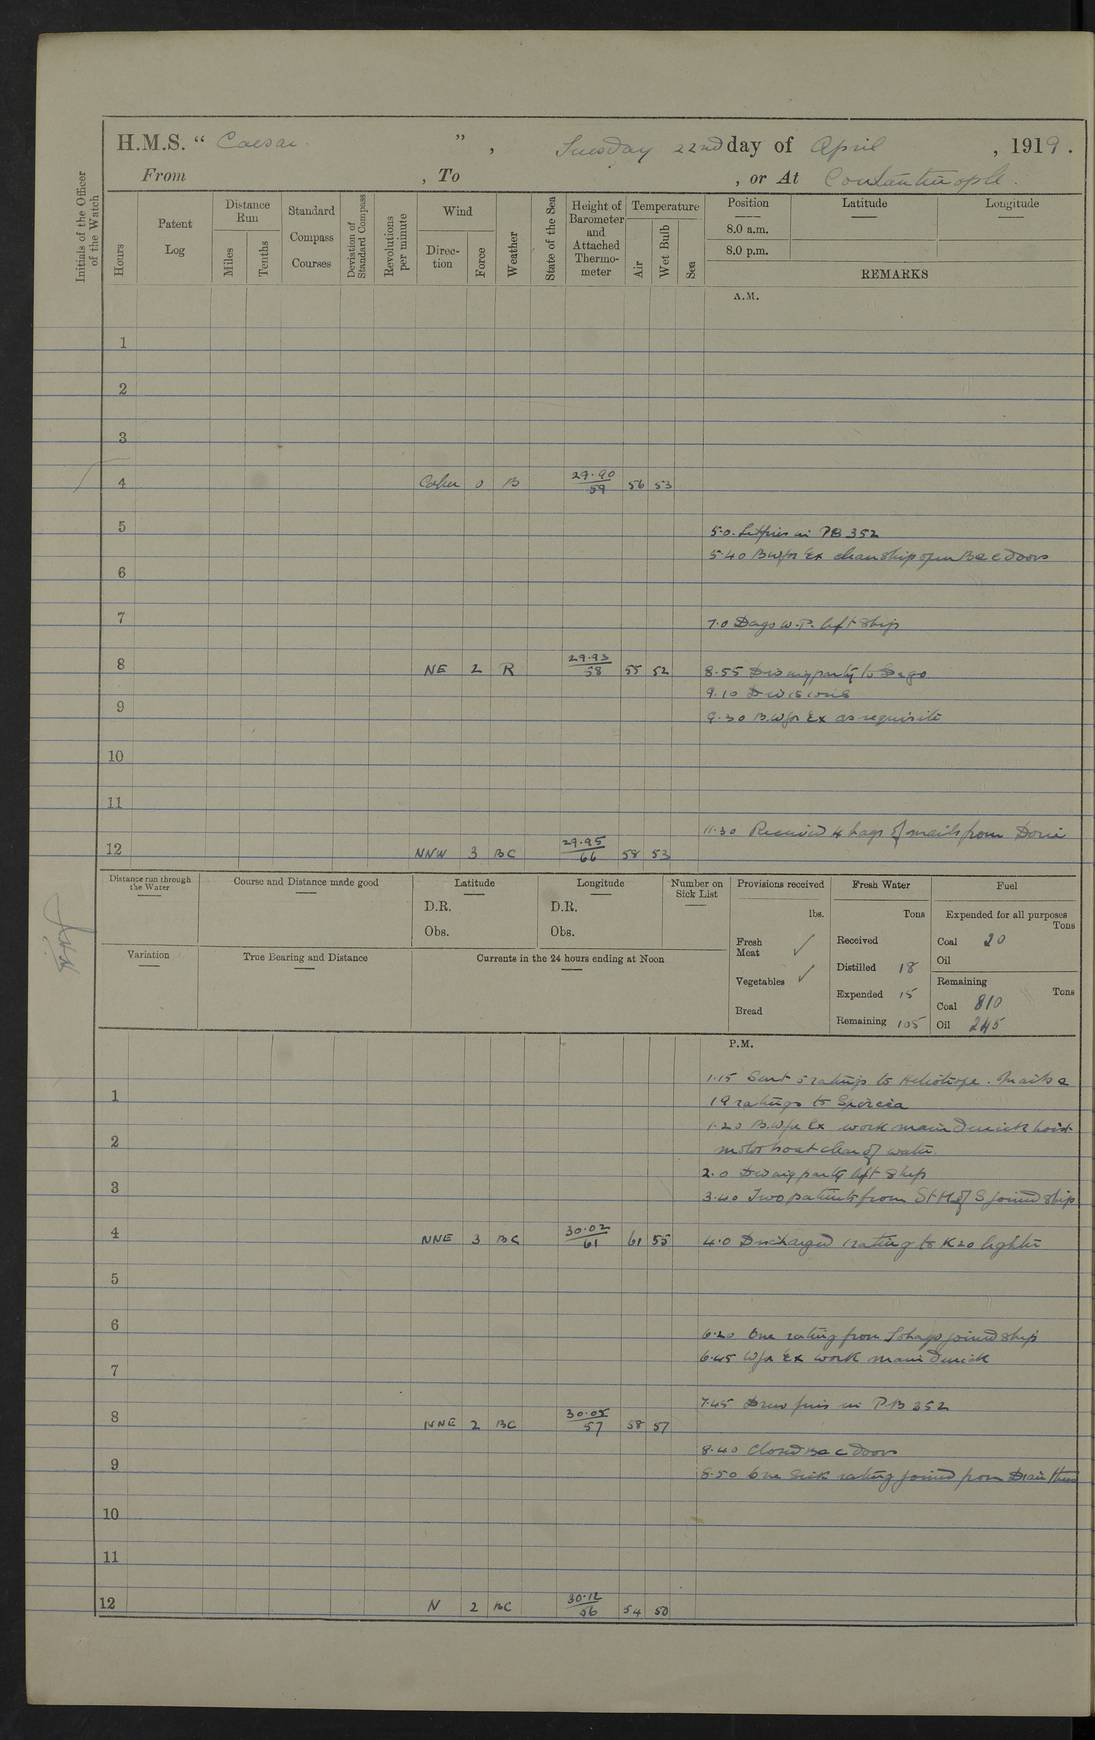 H.M.S. " Caesar ", Tuesday 22nd day of April, 1919.
From , To , or At Constantinople.
Initials of the Officer of the Watch
Hours
Patent Log
Distance Run
Miles
Tenths
Standard Compass Courses
Deviation of Standard Compass
Revolutions per minute
Wind
Direction
Force
Weather
State of the Sea
Height of Barometer and Attached Thermometer
Temperature
Air
Wet Bulb
Sea
Position
Latitude
Longitude
8.0 a.m.
8.0 p.m.
REMARKS
A.M.
1
2
3
4 0 B 29.90/59 56 53
5 5.0 Lit fires in PB 352
5.40 BW/h Ex clean ship open B & C doors
6
7 7.0 W.P. left ship
8 NE 2 R 29.93/58 55 52 8.55 party to
9.10 Divisions
9 9.30 B.W/h Ex as requisite
10
11
11.30 Received 4 bags of mails from
12 NNW 3 BC 29.95/66 58 53
Distance run through the Water
Course and Distance made good
Latitude
D.R.
Obs.
Longitude
D.R.
Obs.
Number on Sick List
Provisions received
lbs.
Fresh Meat ✓
Vegetables ✓
Bread
Fresh Water
Tons
Received
Distilled 18
Expended 15
Remaining 105
Fuel
Expended for all purposes
Tons
Coal 20
Oil
Remaining
Tons
Coal 810
Oil 245
Variation
True Bearing and Distance
Currents in the 24 hours ending at Noon
P.M.
1.15 Sent 5 ratings to Heliotrope. Mails &
1 19 ratings to
1.20 B.W/h Ex work main derrick hoist
2 motor boat clear of water.
2.0 party left ship
3 3.40 Two patients from joined ship
4 NNE 3 BC 30.02/61 61 55 4.0 Discharged 1 rating to K20 lighter
5
6
6.20 One rating from joined ship
6.45 W/h Ex work main derrick
7
7.45 Drew fires in PB 352
8 NNE 2 BC 30.05/57 58 57
8.40 Closed B & C doors
9 8.50 One sick rating joined from
10
11
12 N 2 BC 30.12/56 54 50